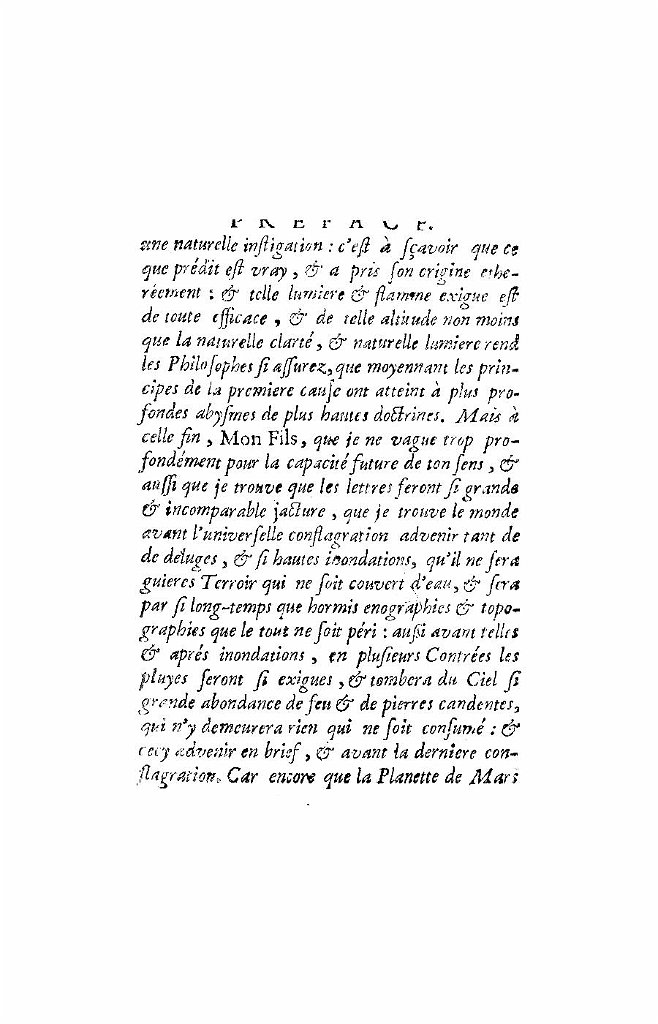 PREFACE.
une naturelle inſtigation : c'eſt à ſçavoir que ce
que prédit eſt vray , & a pris ſon origine ethe-
réement : & telle lumiere & flamme exigue eſt
de toute efficace , & de telle altitude non moins
que la naturelle clarté , & naturelle lumiere rend
les Philoſophes ſi aſſurez, que moyennant les prin-
cipes de la premiere cauſe ont atteint à plus pro-
fondes abyſmes de plus hautes doctrines. Mais à
celle fin , Mon Fils , que je ne vague trop pro-
fondément pour la capacité future de ton ſens , &
auſſi que je trouve que les lettres feront ſi grande
& incomparable jacture , que je trouve le monde
avant l'univerſelle conflagration advenir tant de
de deluges , & ſi hautes inondations, qu'il ne ſera
guieres Terroir qui ne ſoit couvert d'eau, & ſera
par ſi long-temps que hormis enographies & topo-
graphies que le tout ne ſoit péri : auſſi avant telles
& aprés inondations , en pluſieurs Contrées les
pluyes ſeront ſi exigues , & tombera du Ciel ſi
grande abondance de feu & de pierres candentes,
qui n'y demeurera rien qui ne ſoit conſumé : &
cecy advenir en brief , & avant la derniere con-
flagration. Car encore que la Planette de Mars